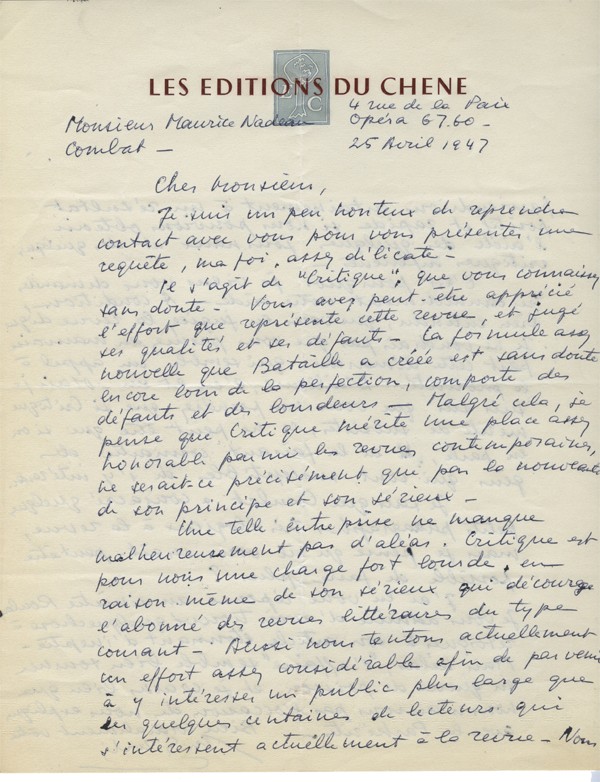 LES EDITIONS DU CHENE
L C
4 rue de la Paix
Monsieur Maurice Nadeau
Opéra 67.60 –
Combat –
25 Avril 1947
Cher Monsieur,
Je suis un peu honteux de reprendre
contact avec vous pour vous présenter une
requête, ma foi, assez délicate –
Il s'agit de "Critique", que vous connaissez
sans doute – Vous avez peut-être apprécié
l'effort que représente cette revue, et jugé
ses qualités et ses défauts – La formule assez
nouvelle que Bataille a créée est sans doute
encore loin de la perfection, comporte des
défauts et des lourdeurs – Malgré cela, je
pense que Critique mérite une place assez
honorable parmi les revues contemporaines,
ne serait-ce précisément que par la nouveauté
de son principe et son sérieux –
Une telle entreprise ne manque
malheureusement pas d'aléas. Critique est
pour nous une charge fort lourde, en
raison même de son sérieux qui décourage
l'abonné des revues littéraires du type
courant – Aussi nous tentons actuellement
un effort assez considérable afin de parvenir
à y intéresser un public plus large que
les quelques centaines de lecteurs qui
s'intéressent actuellement à la revue – Nous